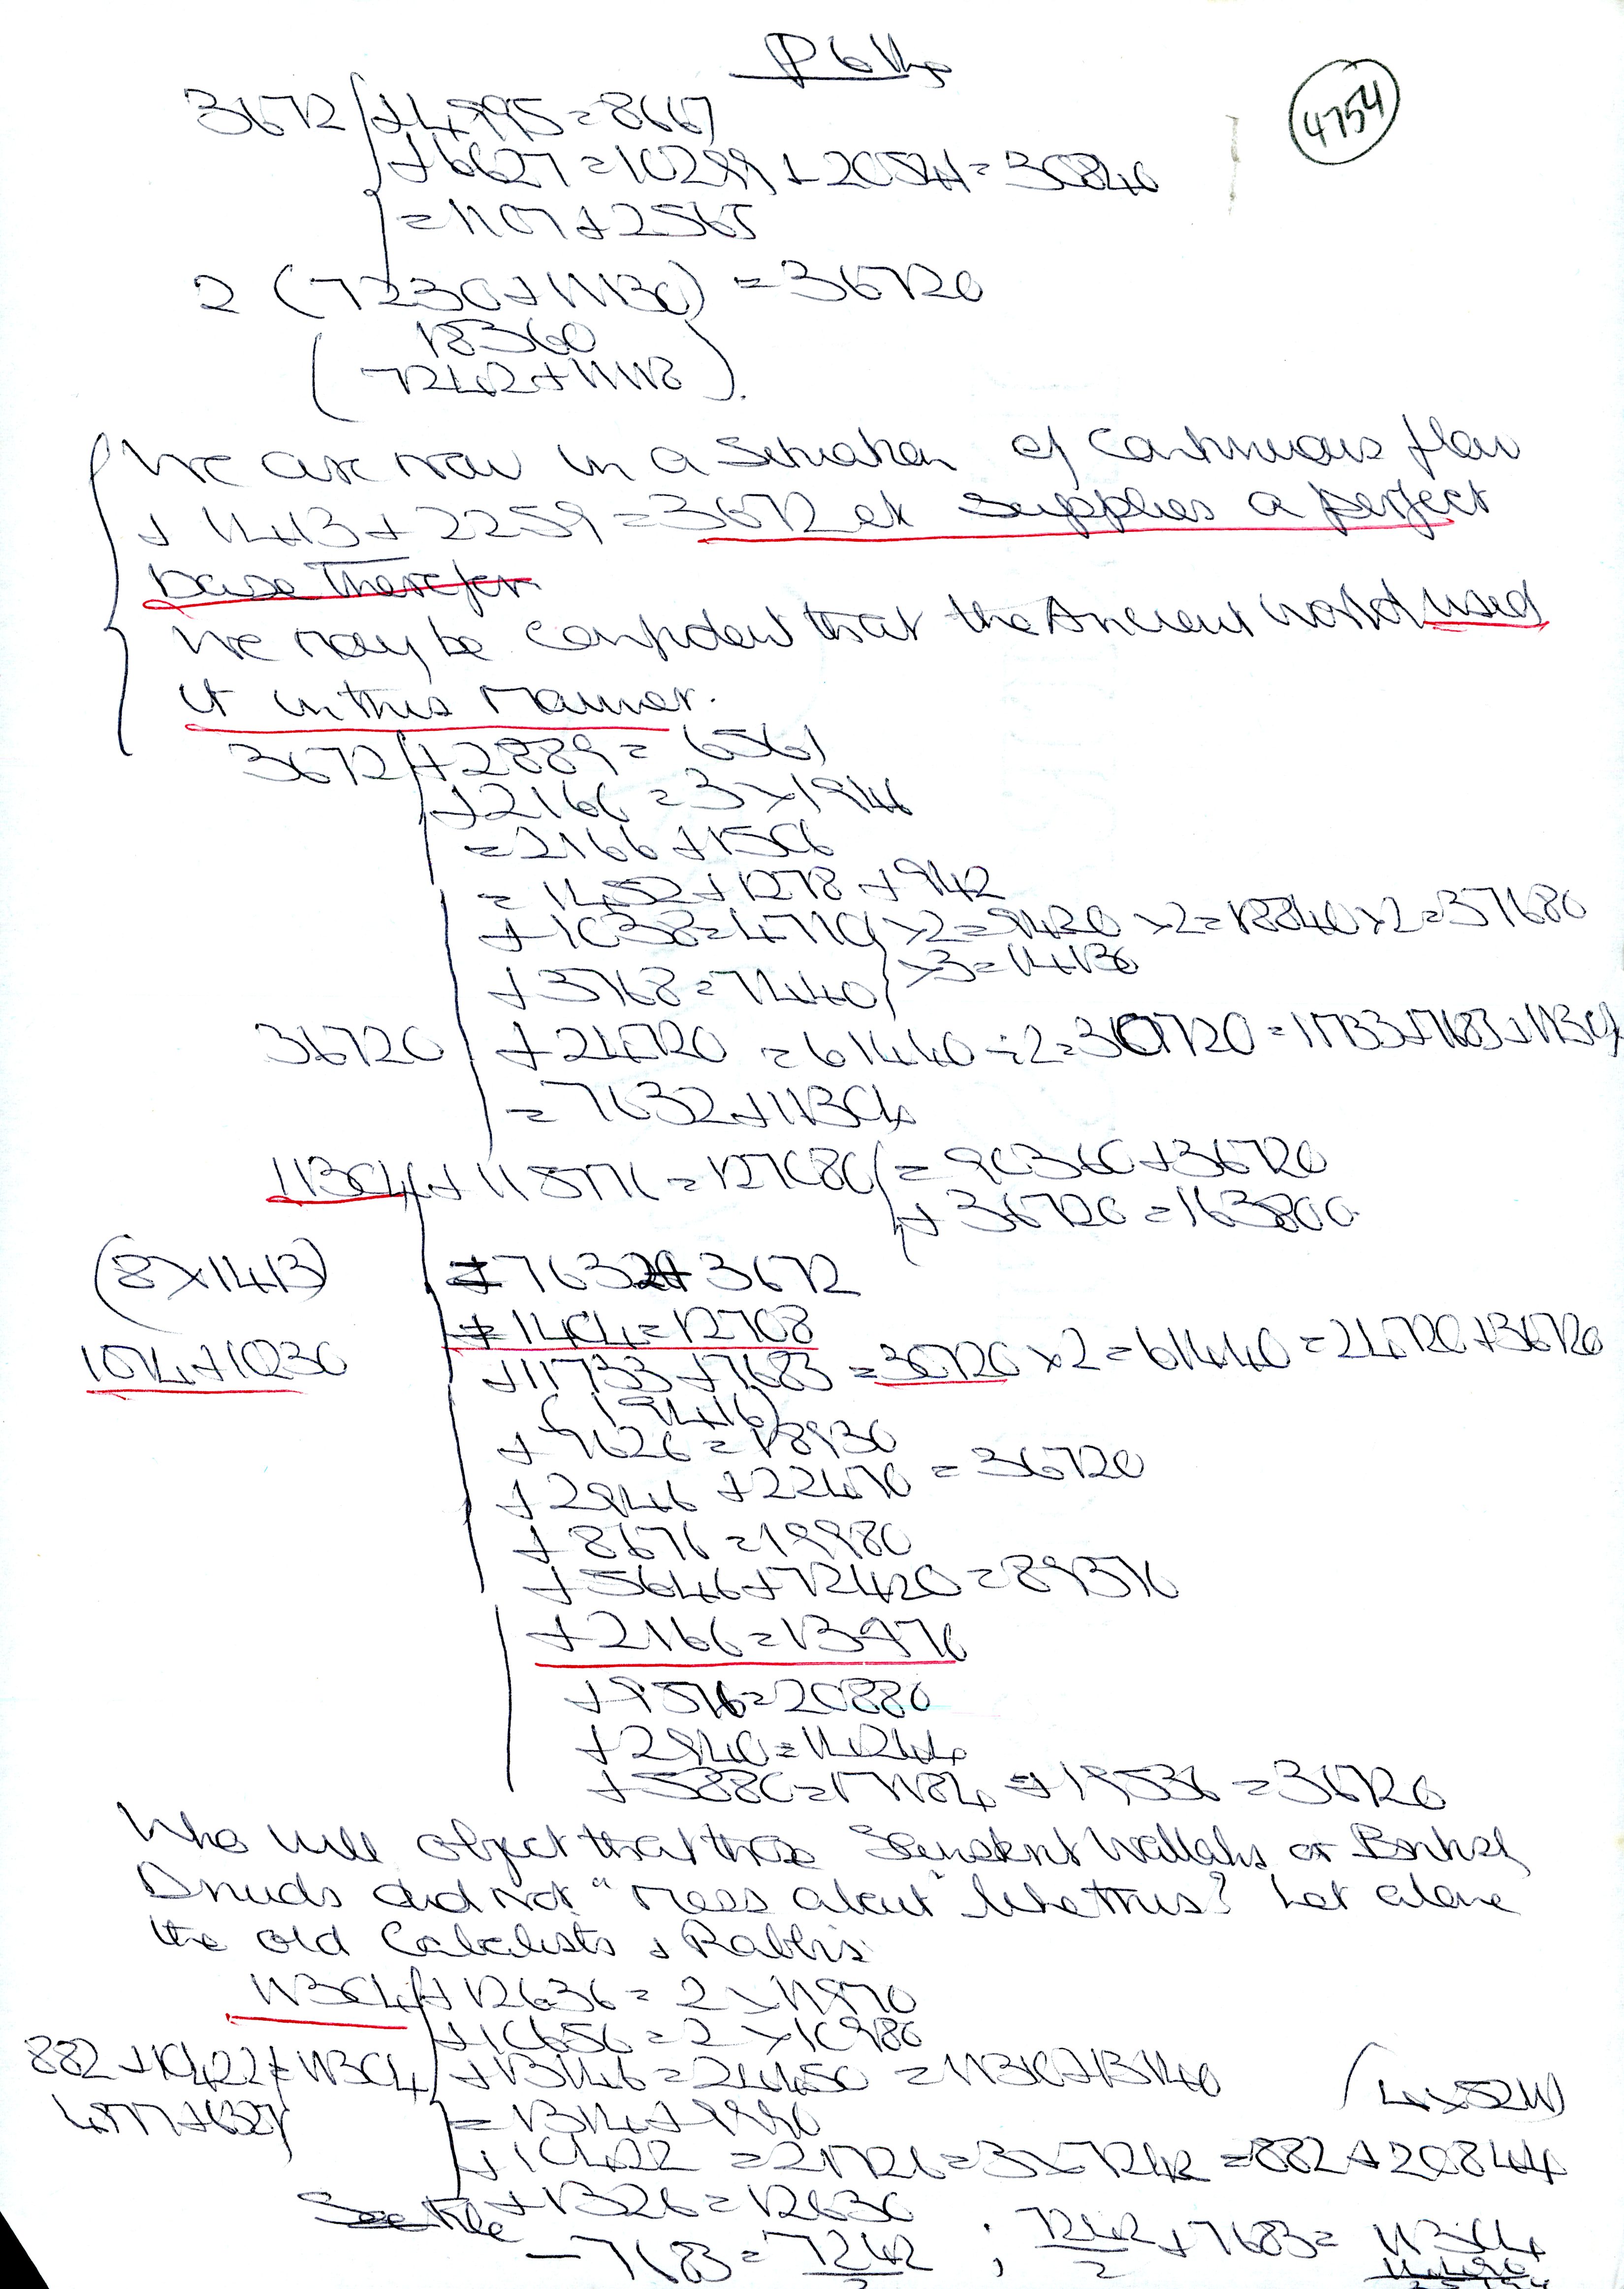 4754
3672 + 4995 = 8667
+ 6627 = 10299 + 20541 = 30840
= 1107 + 2565
2 (7230 + 11130) = 36720
18360
(7242 + 11118)
We are now in a situation of continuous flow
+ 1413 + 2259 = 3672 et supplies a perfect
base therefor
We may be confident that the Ancient World used
it in this manner.
3672 + 2889 = 6561
+ 2166 = 3 × 1946
= 2166 + 1506
= 1452 + 1278 + 942
+ 1038 = 4710 × 2 = 9420 × 2 = 18840 × 2 = 37680
× 3 = 14130
+ 3768 = 7440
36720 + 24720 = 61440 ÷ 2 = 30720 = 11733 + 7683 + 11304
= 7632 + 11304
11304 + 115776 = 127080 = 90360 + 36720
+ 36720 = 163800
(8 × 1413) = 7632 + 3672
+ 1404 = 12708
1074 + 10230 + 11733 + 7683 = 30720 × 2 = 61440 = 24720 + 36720
(19416)
+ 7626 = 18930
+ 2946 + 22470 = 36720
+ 8676 = 19980
+ 5646 + 72420 = 89370
+ 2166 = 13470
+ 9576 = 20880
+ 2940 = 14244
+ 5880 = 17184 + 19536 = 36720
Who will object that those Sanskrit Wallahs or British
Druids did not "mess about" like this? Let alone
the old Cabalists + Rabbis
11304 + 12636 = 2 × 11970
+ 10656 = 2 × 10980
882 + 10422 = 11304 + 13146 = 24450 = 11310 + 13140
= 1314 + 9990 (4 × 5211)
+ 10422 = 21726 = 3 × 7242 = 882 + 20844
+ 1326 = 12630
- 7683 = 7242/2 ; 7242/2 + 7683 = 11304